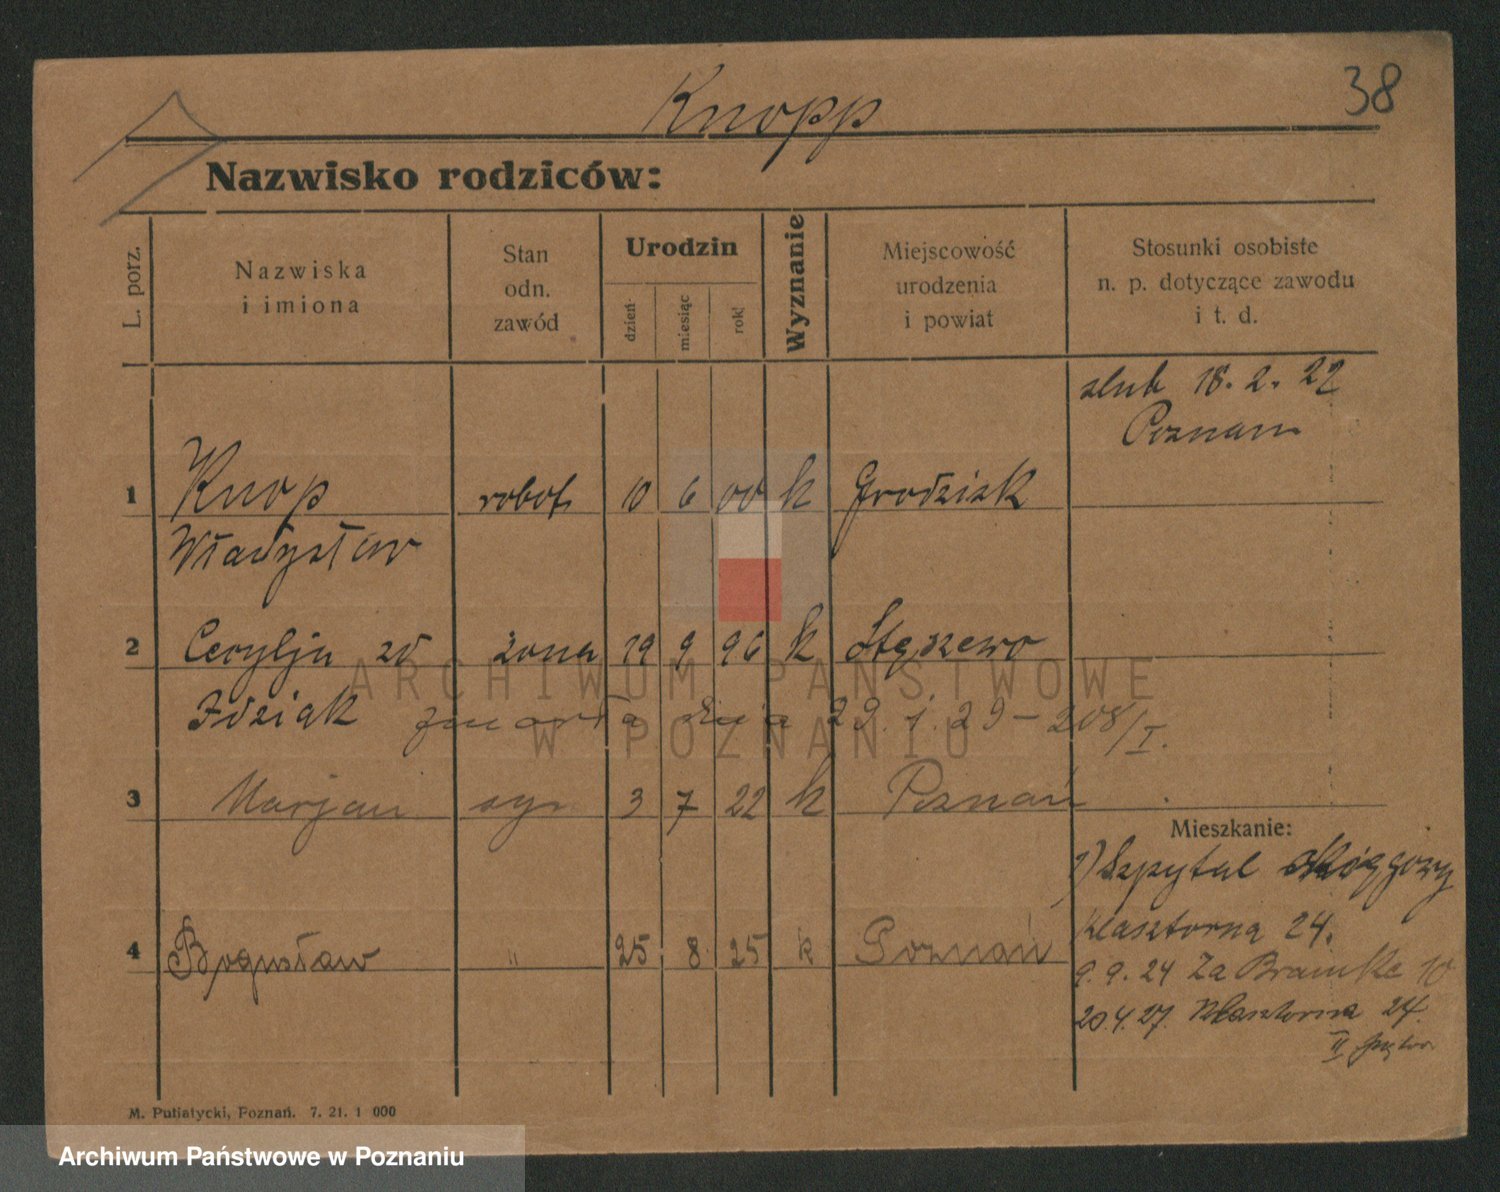 38
Knopp
Nazwisko rodziców:
L. porz.
Nazwiska
i imiona
Stan
odn.
zawód
Urodzin
dzień
miesiąc
rok
Wyznanie
Miejscowość
urodzenia
i powiat
Stosunki osobiste
n. p. dotyczące zawodu
i t. d.
slub 18. 2. 22
Poznan
1 Knop robot 10 6 00 k Grodzisk
Władysław
2 Cecylja zd żona 19 9 96 k Stęszewo
Idziak zmarła dnia 29. 1. 29 - 208/I.
3 Marjan syn 3 7 22 k Poznań
Mieszkanie:
1) Szpytal
Klasztorna 24.
4 Bogusław " 25 8 25 k Poznań
9. 9. 24 Za Bramke 10
20.4.27. Klasztorna 24.
II piętro
M. Putiatycki, Poznań. 7. 21. 1 000
ARCHIWUM PAŃSTWOWE
W POZNANIU
Archiwum Państwowe w Poznaniu